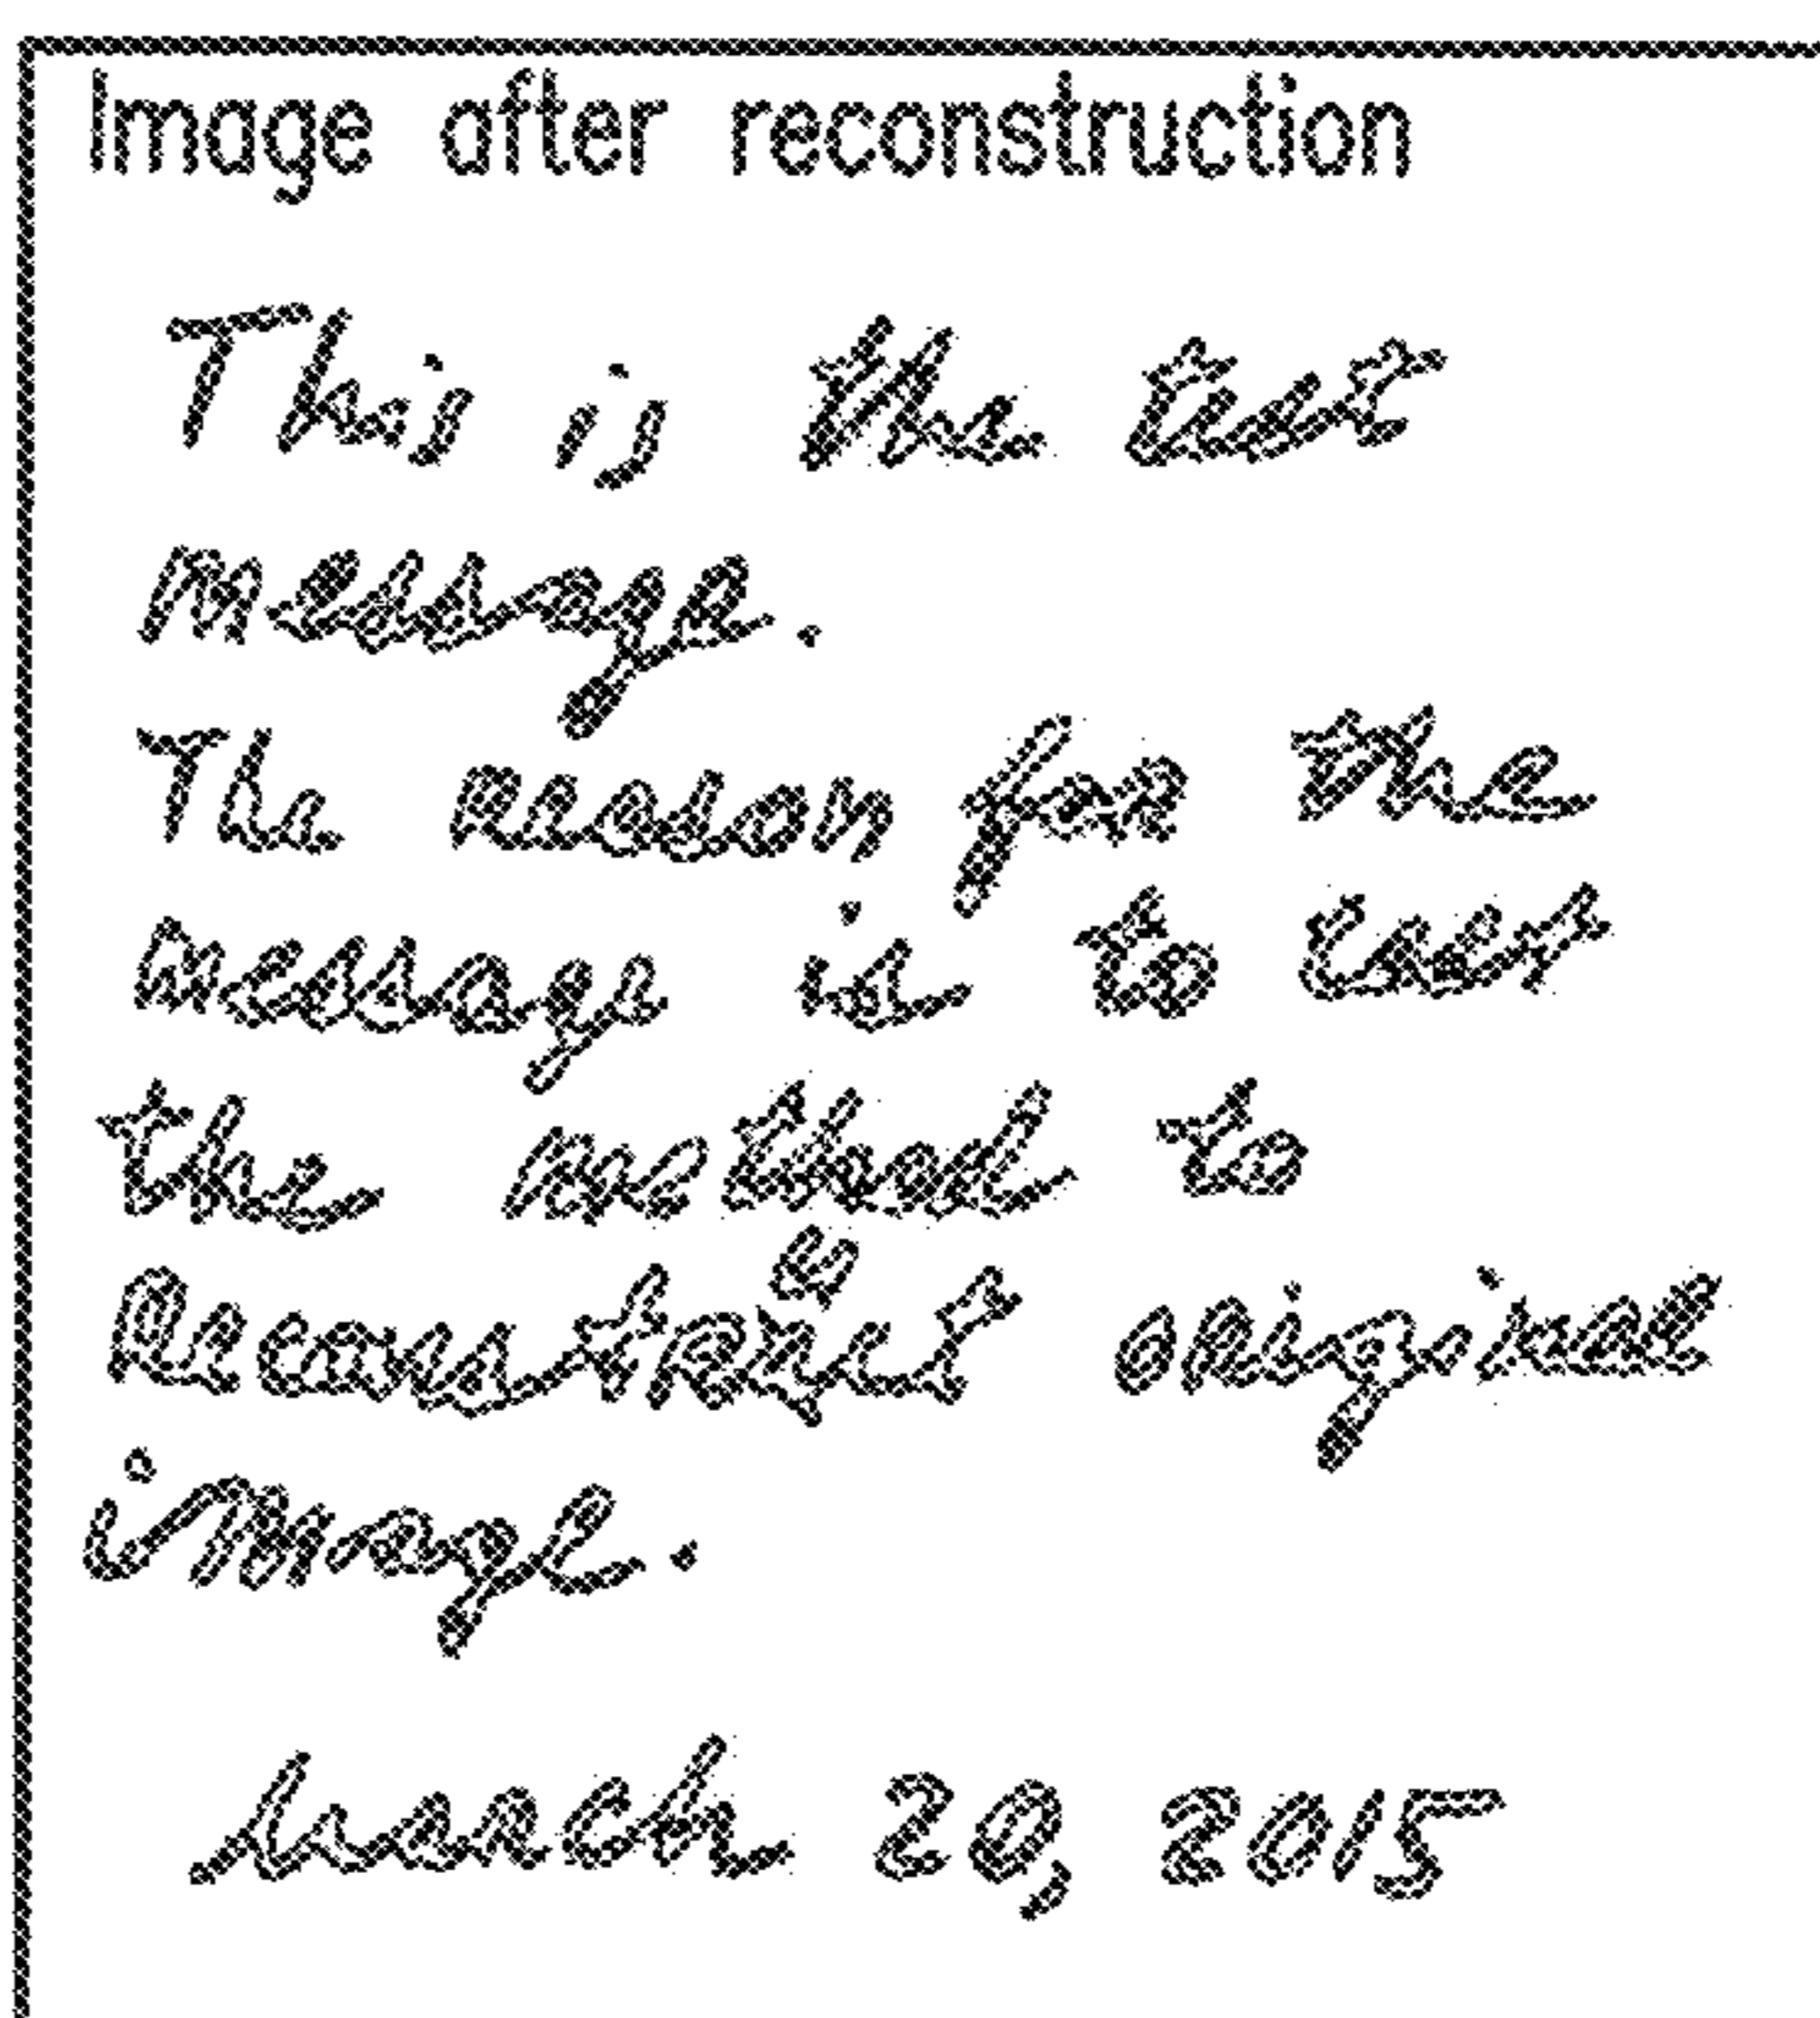 Image after reconstruction
This is the test
message.
The reason for the
message is to test
the method to
reconstruct original
image.
March 20, 2015